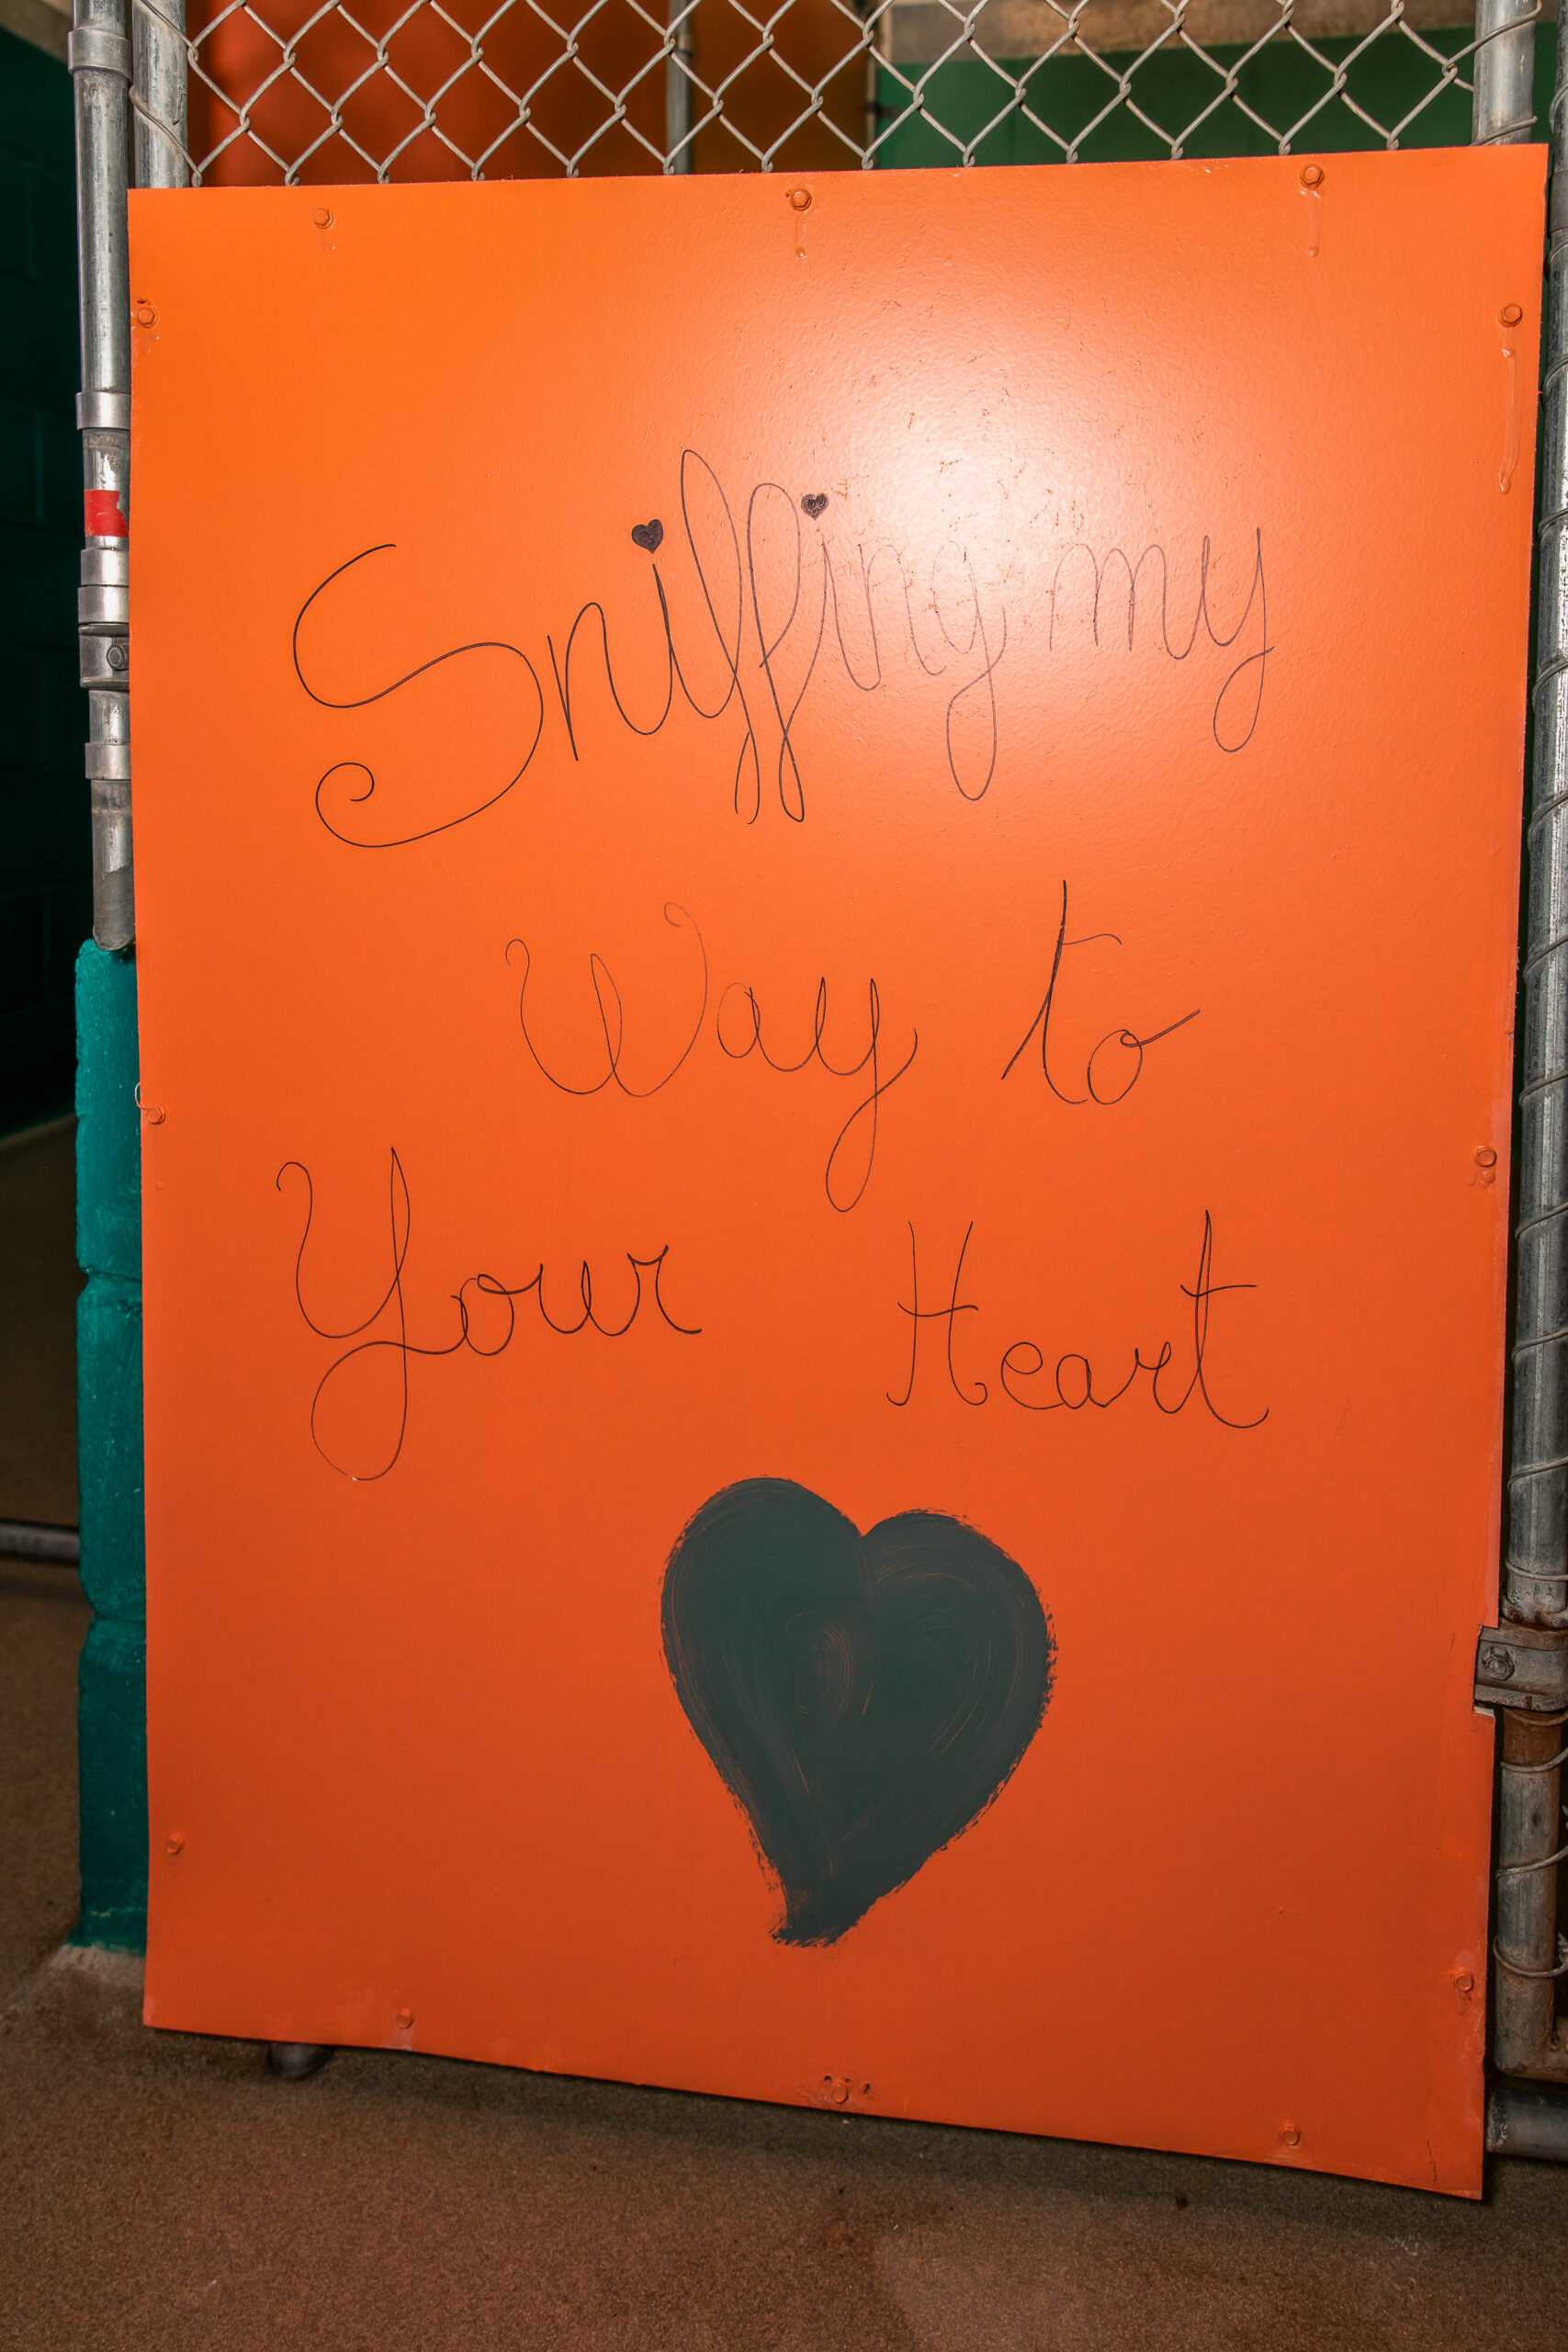 Sniffing my
Way to
Your Heart